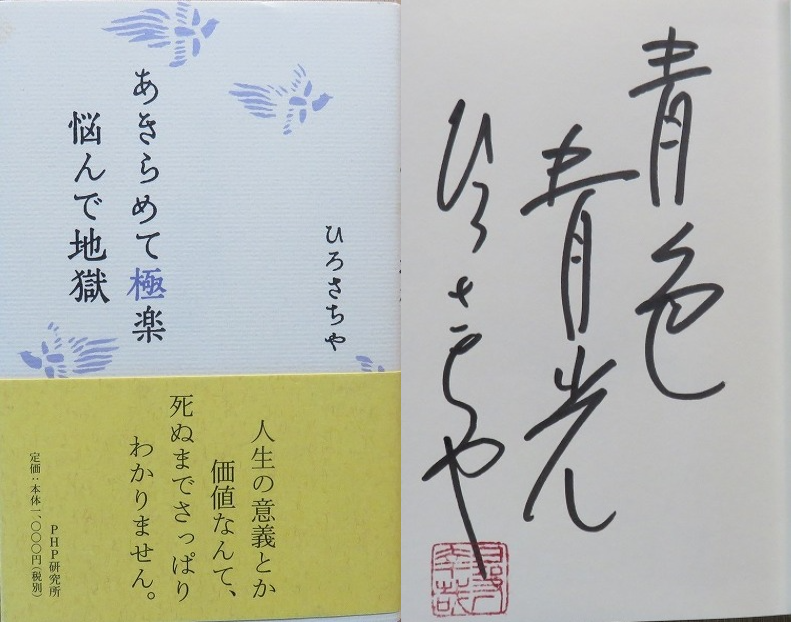 ひろさちや
あきらめて極楽
悩んで地獄
人生の意義とか
価値なんて、
死ぬまでさっぱり
わかりません。
PHP研究所
定価：本体一、〇〇〇円（税別）
青色
青光
ひろさちや